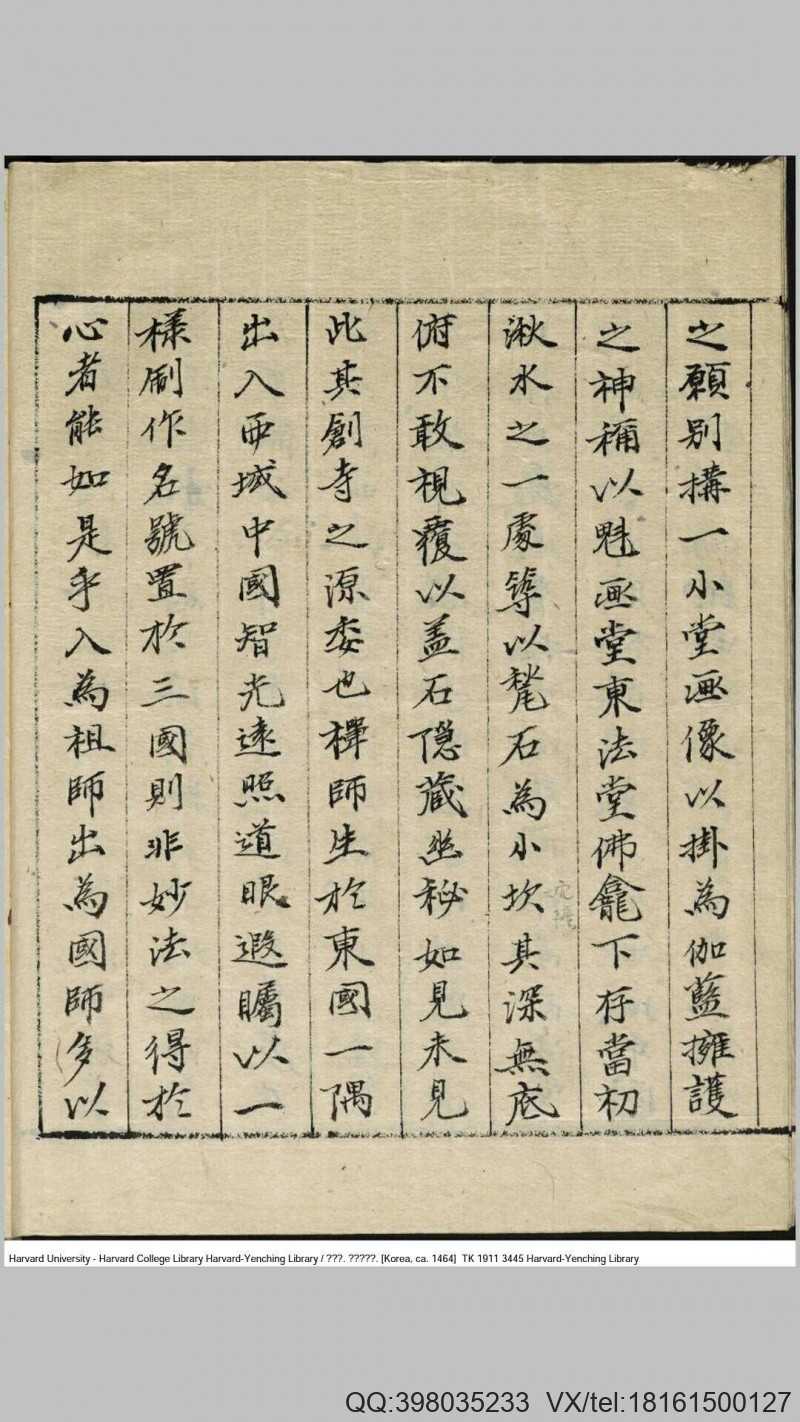 之願別搆一小堂画像以掛為伽藍擁護
之神稱以魁画堂東法堂佛龕下存當初
湫水之一處築以甃石為小坎其深無底
俯不敢視覆以盖石隱藏幽秘如見未見
此其創寺之源委也禪師生於東國一隅
出入西域中國智光遠照道眼遐矚以一
樣刷作名號置於三國則非妙法之得於
心者能如是乎入為祖師出為國師多以
Harvard University - Harvard College Library Harvard-Yenching Library / ???. ?????. [Korea, ca. 1464] TK 1911 3445 Harvard-Yenching Library
QQ:398035233 VX/tel:18161500127